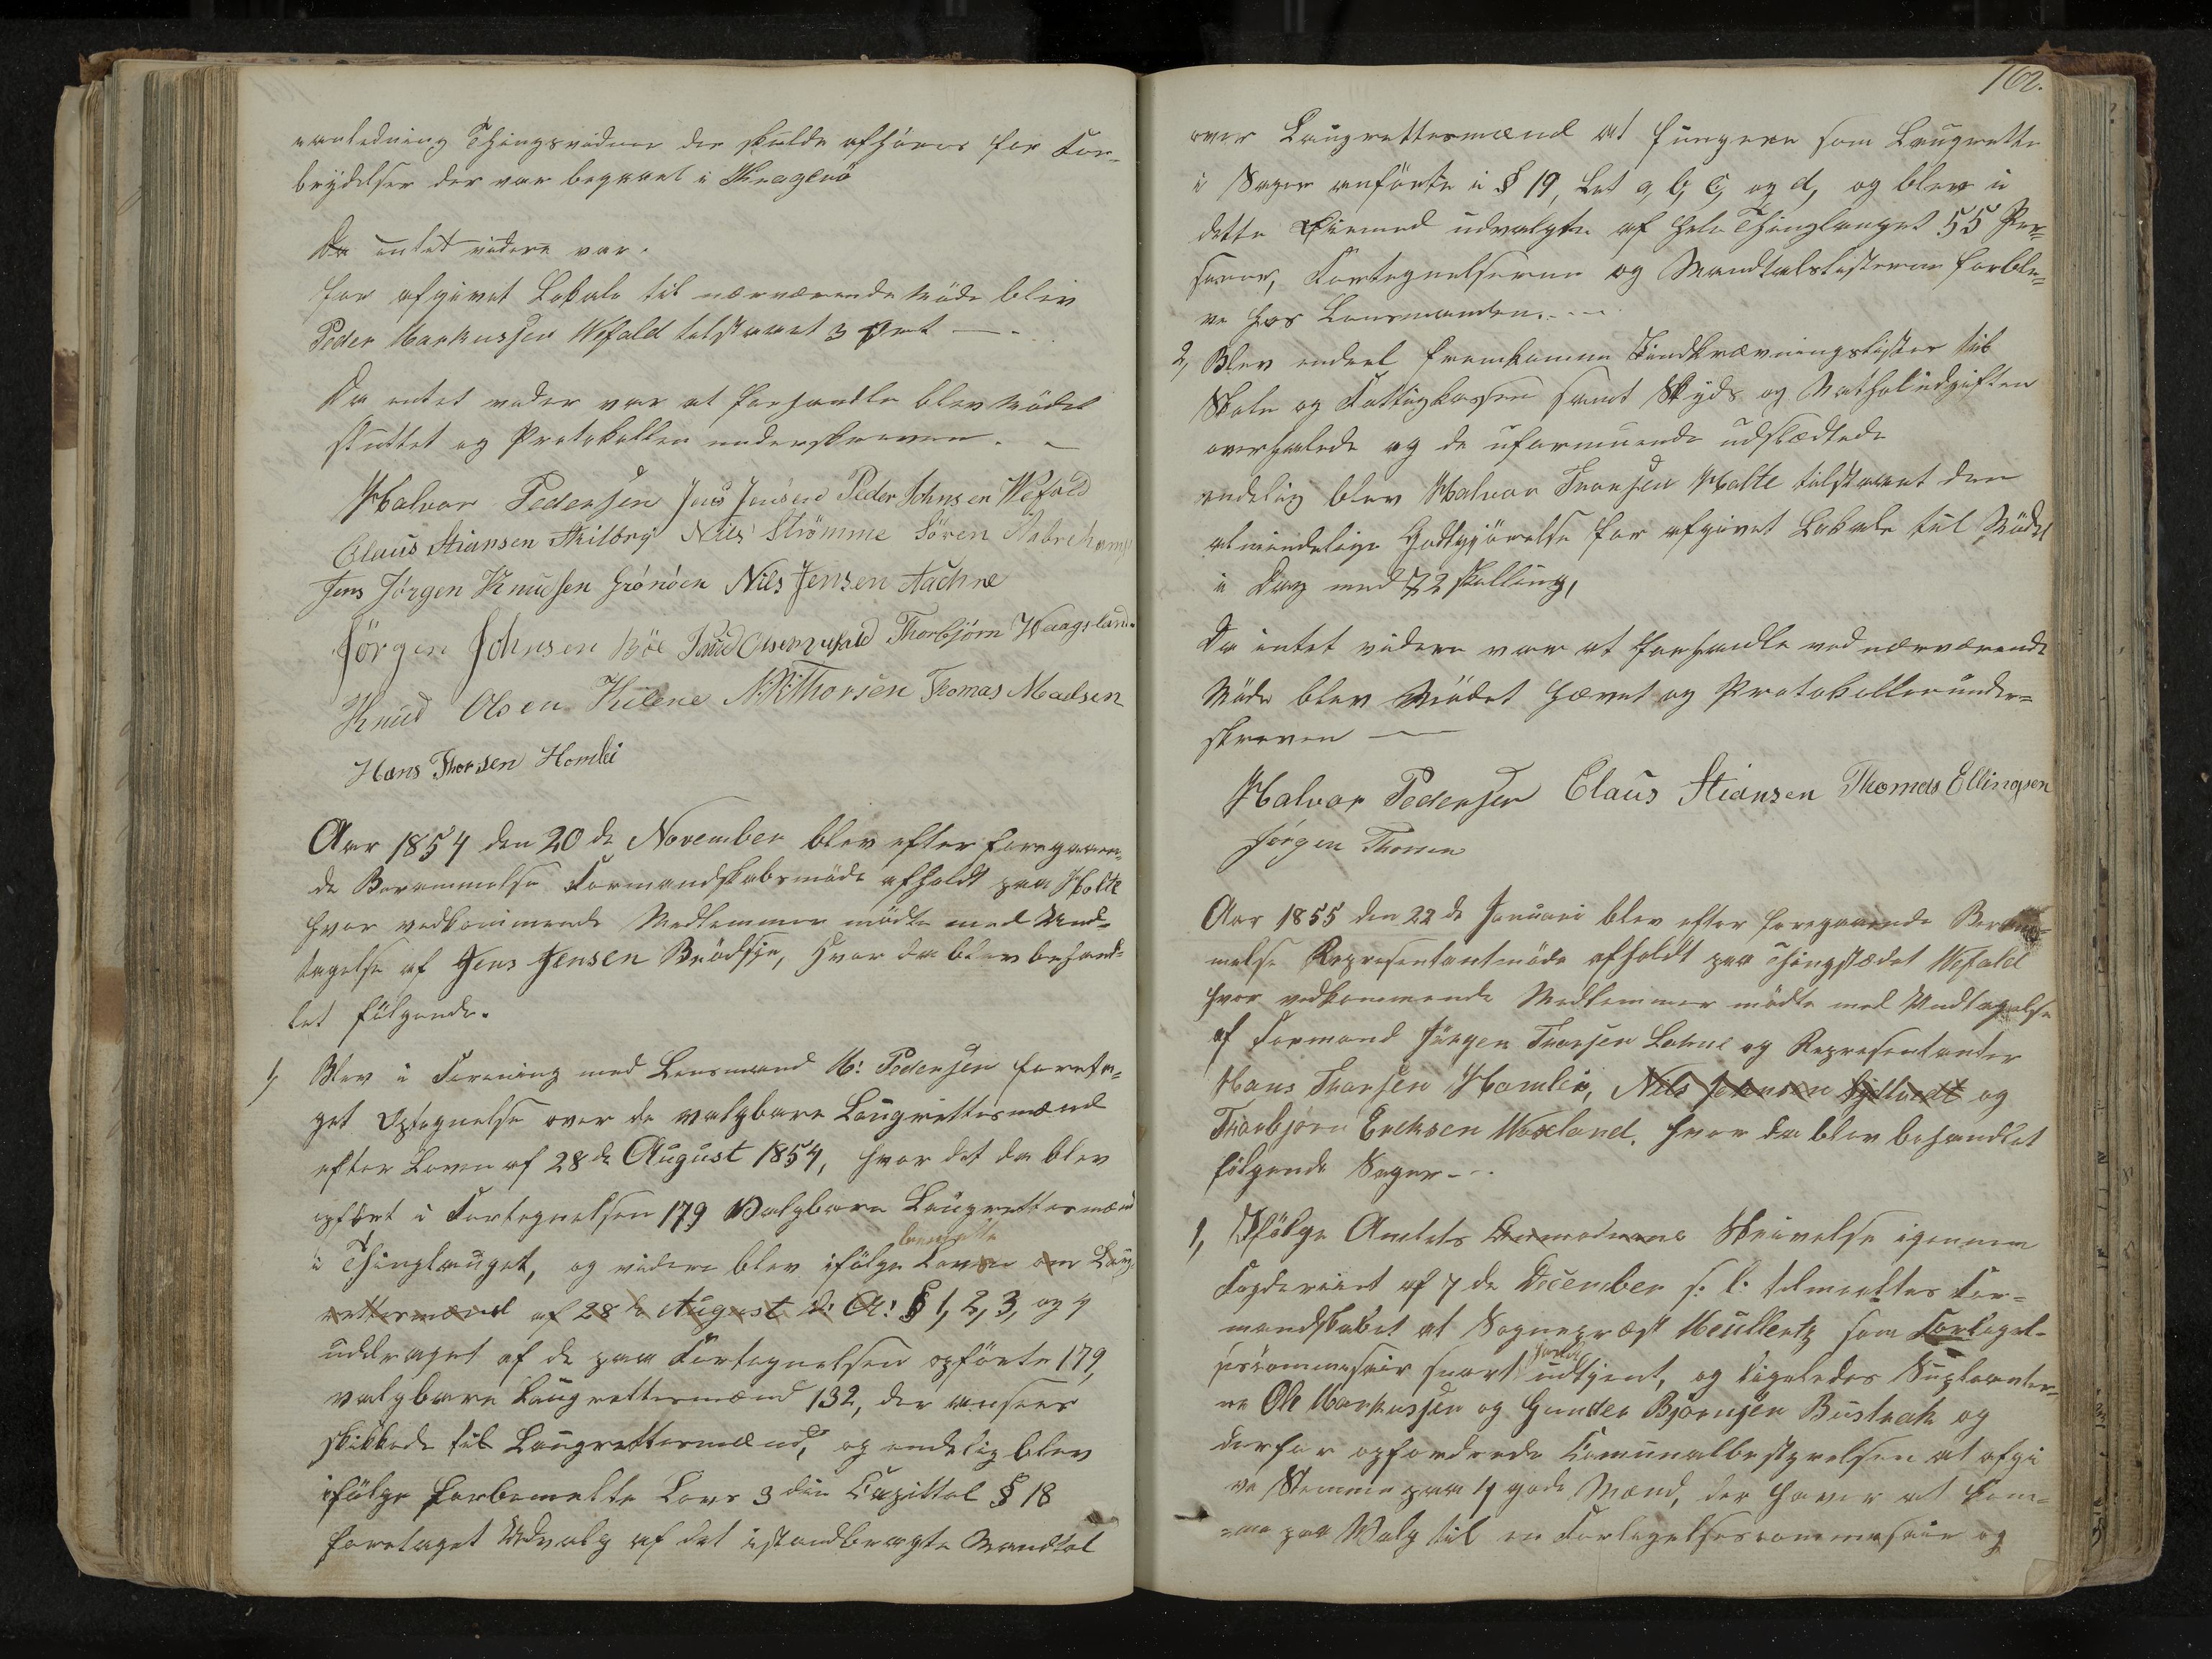 anledning Thingsvidner der skulde afhøres for For-
brydelser der var begaaet i Kragerø
Da intet videre var.
for afgivet Lokale til nærværende Møde blev
Peder Markussen Wefald tilstaaet 3 Ort —
Da intet videre var at forhandle blev Mödet
sluttet og Protokollen underskreven. —
Halvor Pedersen Jens Jensen Peder Johnsen Wefald
Claus Stiansen Nils Strömme Sören
Jens Jörgen Knudsen Grönåen Nils Jensen
Jörgen Johnsen Böe Knud Olsen Thorbjörn Waagsland
Knud Olsen Kilene N. Thorsen Thomas Madsen
Hans Thorsen Homlei
Aar 1854 den 20de November blev efter foregaaen-
de Berammelse Formandskabsmöde afholdt paa Holte
hvor vedkommende Medlemmer mödte med Und-
tagelse af Jens Jensen Brödsje, hvor da blev behand-
let fölgende.
1, Blev i Forening med Lensmand H: Pedersen foreta-
get Optegnelse over de valgbare Laugrettesmænd
efter Loven af 28de August 1854, hvor det da blev
opfört i Fortegnelsen 179 Valgbare Laugrettesmænd
bemeldte
i Thinglauget, og videre blev ifölge Loven om Laug-
rettesmænd af 28de August d: A: § 1, 2, 3, og 4
uddraget af de paa Fortegnelsen opförte 179,
valgbare Laugrettesmænd 132, der ansees
skikkede til Laugrettesmænd, og endelig blev
ifölge forbemeldte Lovs 3die Capittel § 18
foretaget Udvalg af det istandbragte Mandtal
162.
over Laugrettesmænd at fungere som Laugrette
i Sager anförte i § 19, Let a, b, c, og d, og blev i
dette Öiemed udvalgte af hele Thinglauget 55 Per-
soner, Fortegnelserne og Mandtalslisterne forble-
ve hos Lensmanden. —
2, Blev endeel fremkomne Inddrævningslister til
Skole og Fattigkassen samt Skyds og Matholdudgiften
overhalede og de uformuende udslættede
endelig blev Halvor Thorsen Holte tilstaaet den
almindelige Godtgjörelse for afgivet Lokale til Mödet
i Dag med 72 skilling,
Da intet videre var at forhandle ved nærværende
Möde blev Mödet hævet og Protokollen under-
skreven —
Halvor Pedersen Claus Stiansen Thomas Ellingsen
Jörgen Thorsen
Aar 1855 den 22de Januari blev efter foregaaende Beram-
melse Representantmöde afholdt paa Thingstædet Wefald
hvor vedkommende Medlemmer mödte med Undtagelse
af Formand Jörgen Thorsen Lohne og Representanter
Hans Thorsen Homlei, Nils Johnsen og
Thorbjörn Ericksen Woxland. hvor da blev behandlet
fölgende Sager —
1, Ifölge Amtets Skrivelse igennem
Fogderiet af 7de December f: A: tilmeldtes For-
mandskabet at Sognepræst Meullertz som Forligel-
sescommissair snart havde udtjent, og ligeledes Supleanter-
ne Ole Markussen og Gunder Björnsen Bustrak og
derfor opfordrede Communalbestyrelsen at afgi
ve Stemme paa 4 gode Mænd, der haver at kom-
me paa Valg til en Forligelsescommissair og